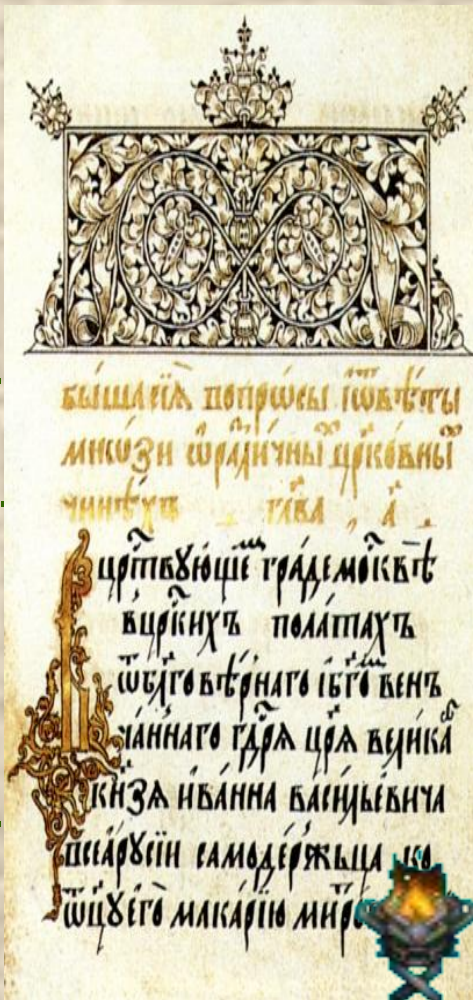 бы́ша сїѧ̀ вопрѡ́сы і ѿвѣ́ты
мнѡ́зи ѡ҆ разли́чны црк҃о́вны
чинѣ́хъ гл҃ва а҃
В црⷭ҇твꙋ́юще гра́де моⷭ҇квѣ̀
в црⷭ҇кихъ пола́тахъ
ѿ бл҃говѣ́рнаго і бг҃о вен
ча́ннаго гдⷭ҇рѧ цр҃ѧ̀ вели́каⷢ҇
кн҃ѕѧ ива́нна васи́льевича
всеѧ̀ рꙋсі́и самоде́ржьца ко
ѿцꙋ̀ его̀ мака́рїю